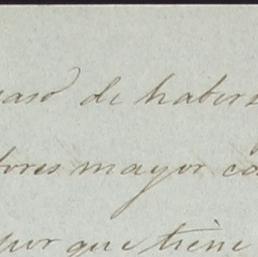 caso de habers
tores mayor co
por que tiene